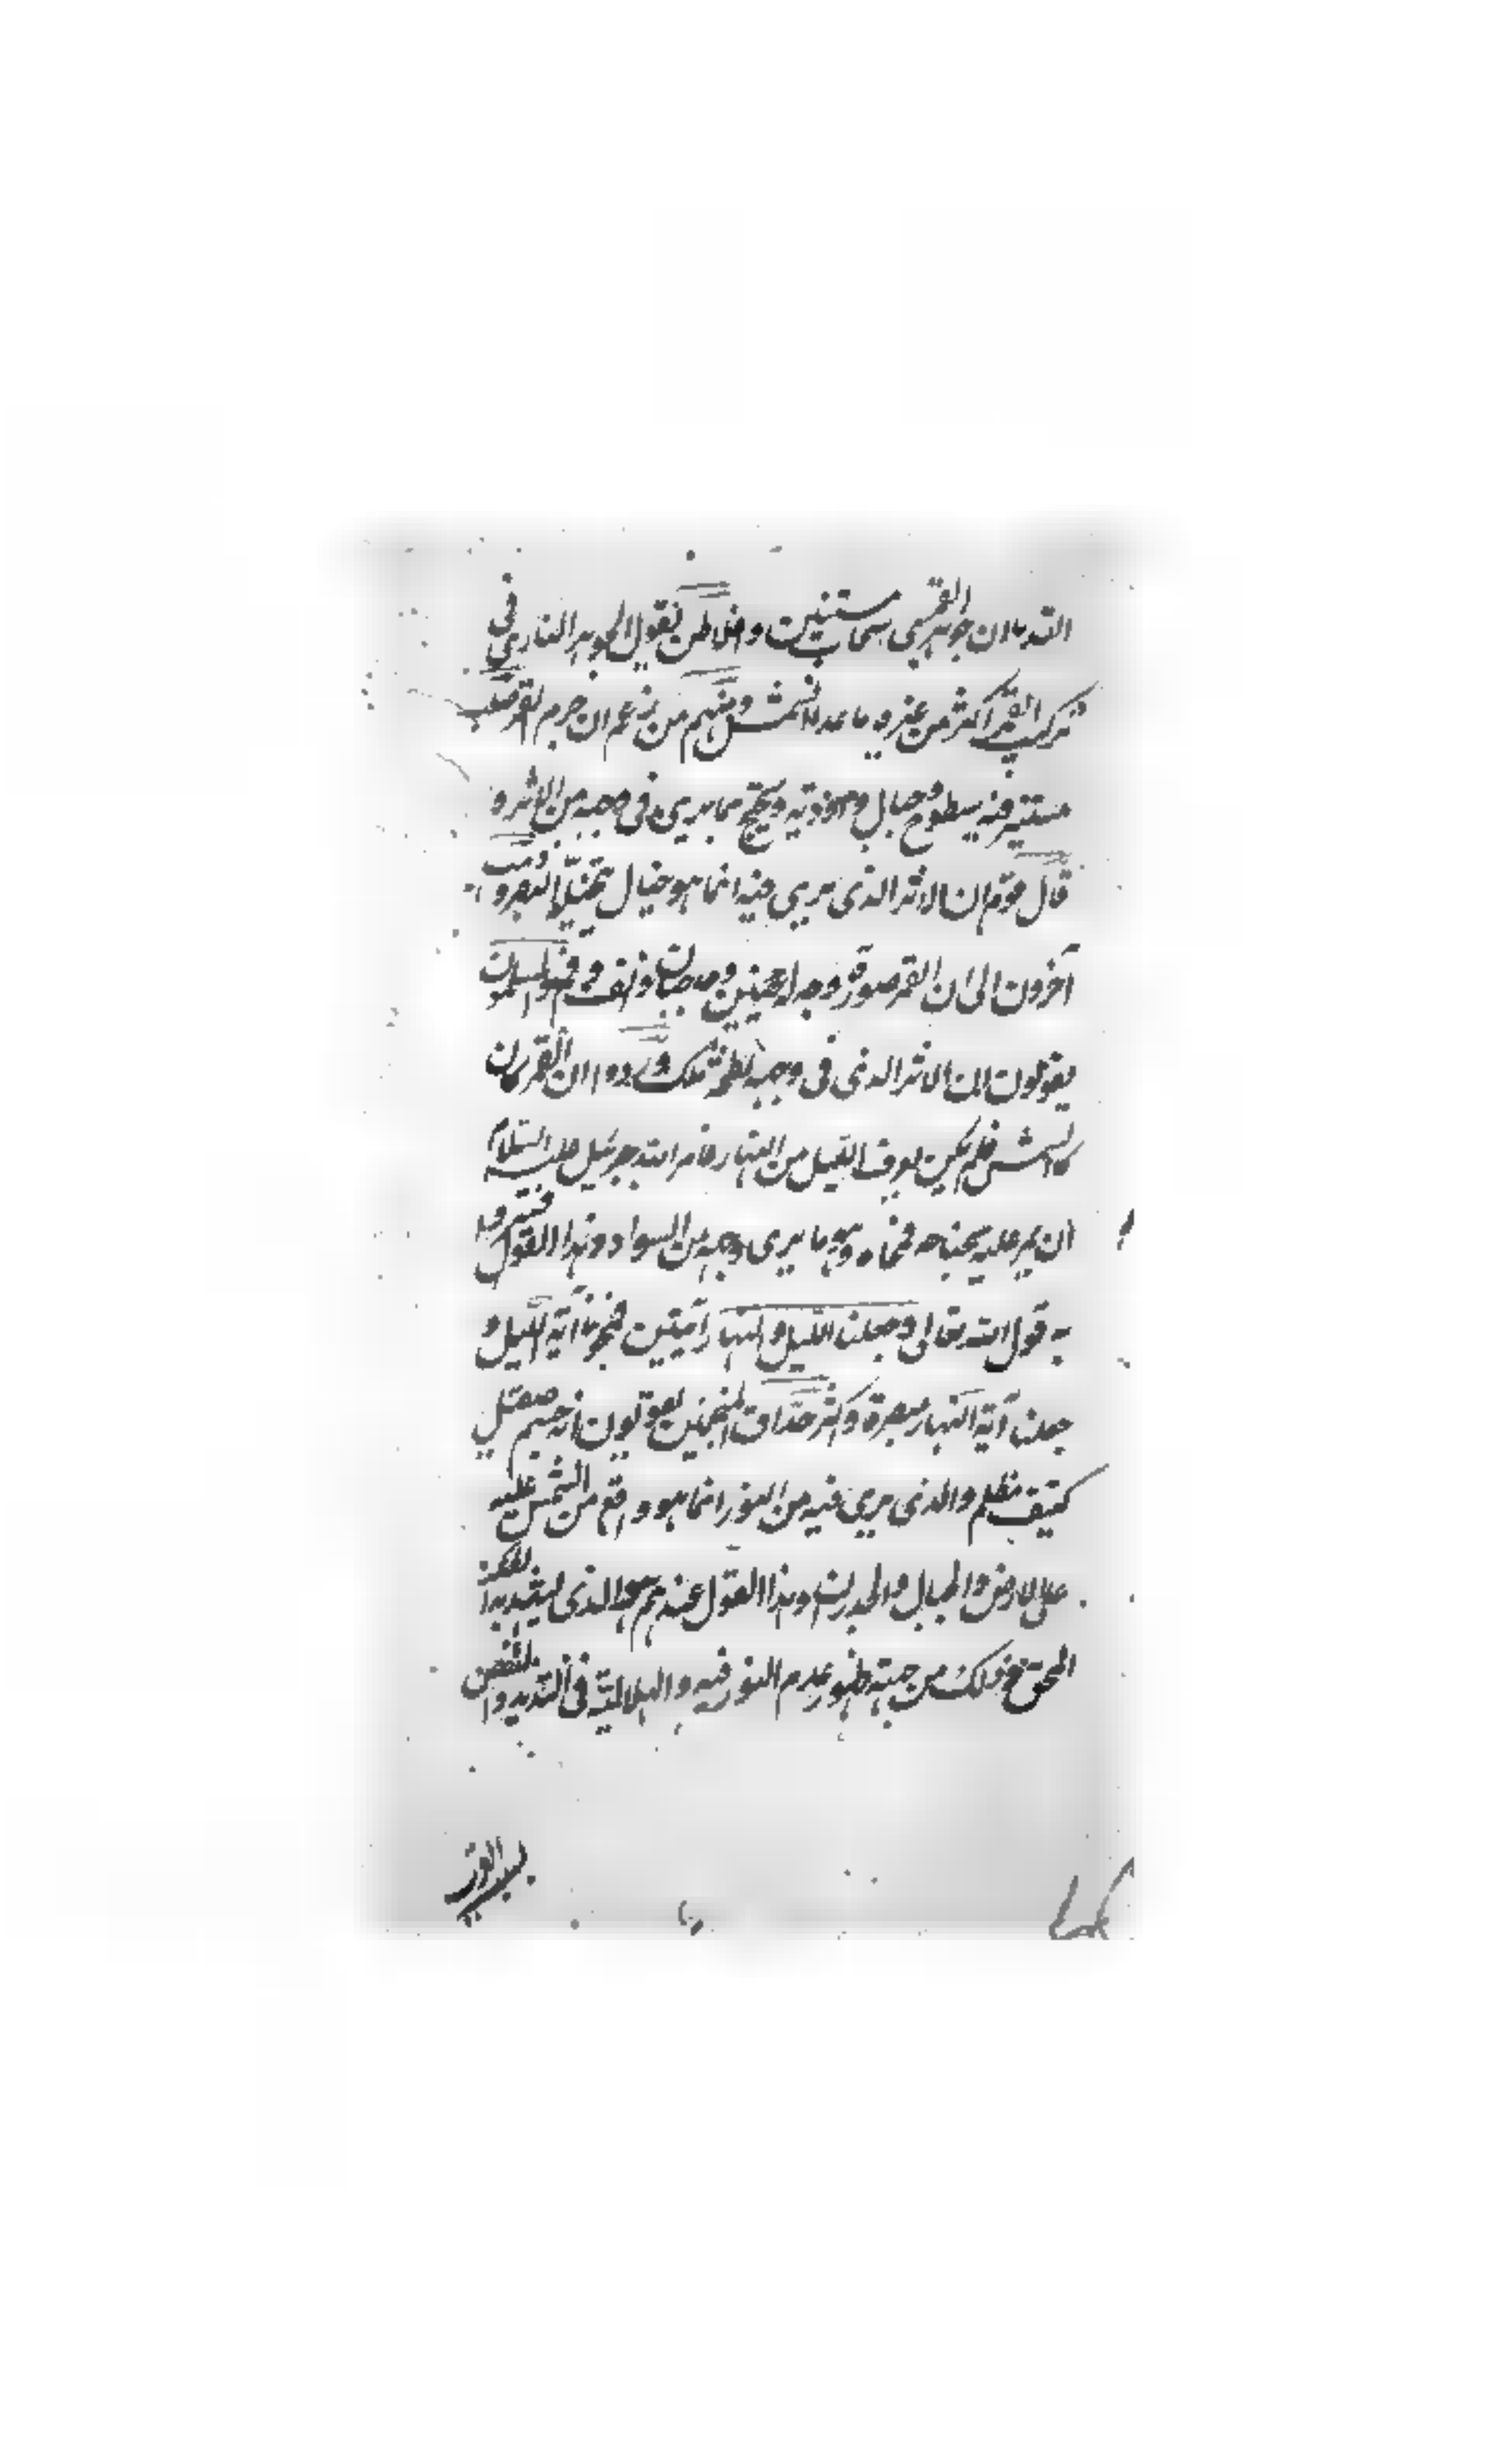 القدماء ان جوهر القمر سحاب مستنير وافلاطن يقول الجوهر الناري في
تركيب القمر اكثر من غيره ما عدا الشمس ومنهم من زعم ان جرم القمر صلب
مستنير فيه سطوح وجبال واودية ويحتج بما يرى في وجهه من الاثر و
قال قوم ان الاثر الذي يرى فيه انما هو خيال يتخيله البصر وذهب
آخرون الى ان القمر صورة وجه له عينين وحاجبان وانف وفم والمسلمون
يقولون ان الاثر الذي في وجهه لطمة ملك ورووا ان القمر كان
كالشمس فلم يكن يعرف الليل من النهار فامر الله جبرئيل عليه السلام
ان يمر عليه بجناحه فمحاه وهو ما يرى في وجهه من السواد وهذا القول فسر
به قول الله تعالى وجعلنا الليل والنهار آيتين فمحونا آية الليل و
جعلنا آية النهار مبصرة واكثر حذاق المنجمين يقولون انه جسم صقيل
كثيف مظلم والذي يرى فيه من النور انما هو واقع من الشمس عليه
على الارض والجبال والجدران وهذا القول عندهم هو الذي
الحق ذلك من جهة ظهور عدم النور فيه والهلالية في التزيد والنقص